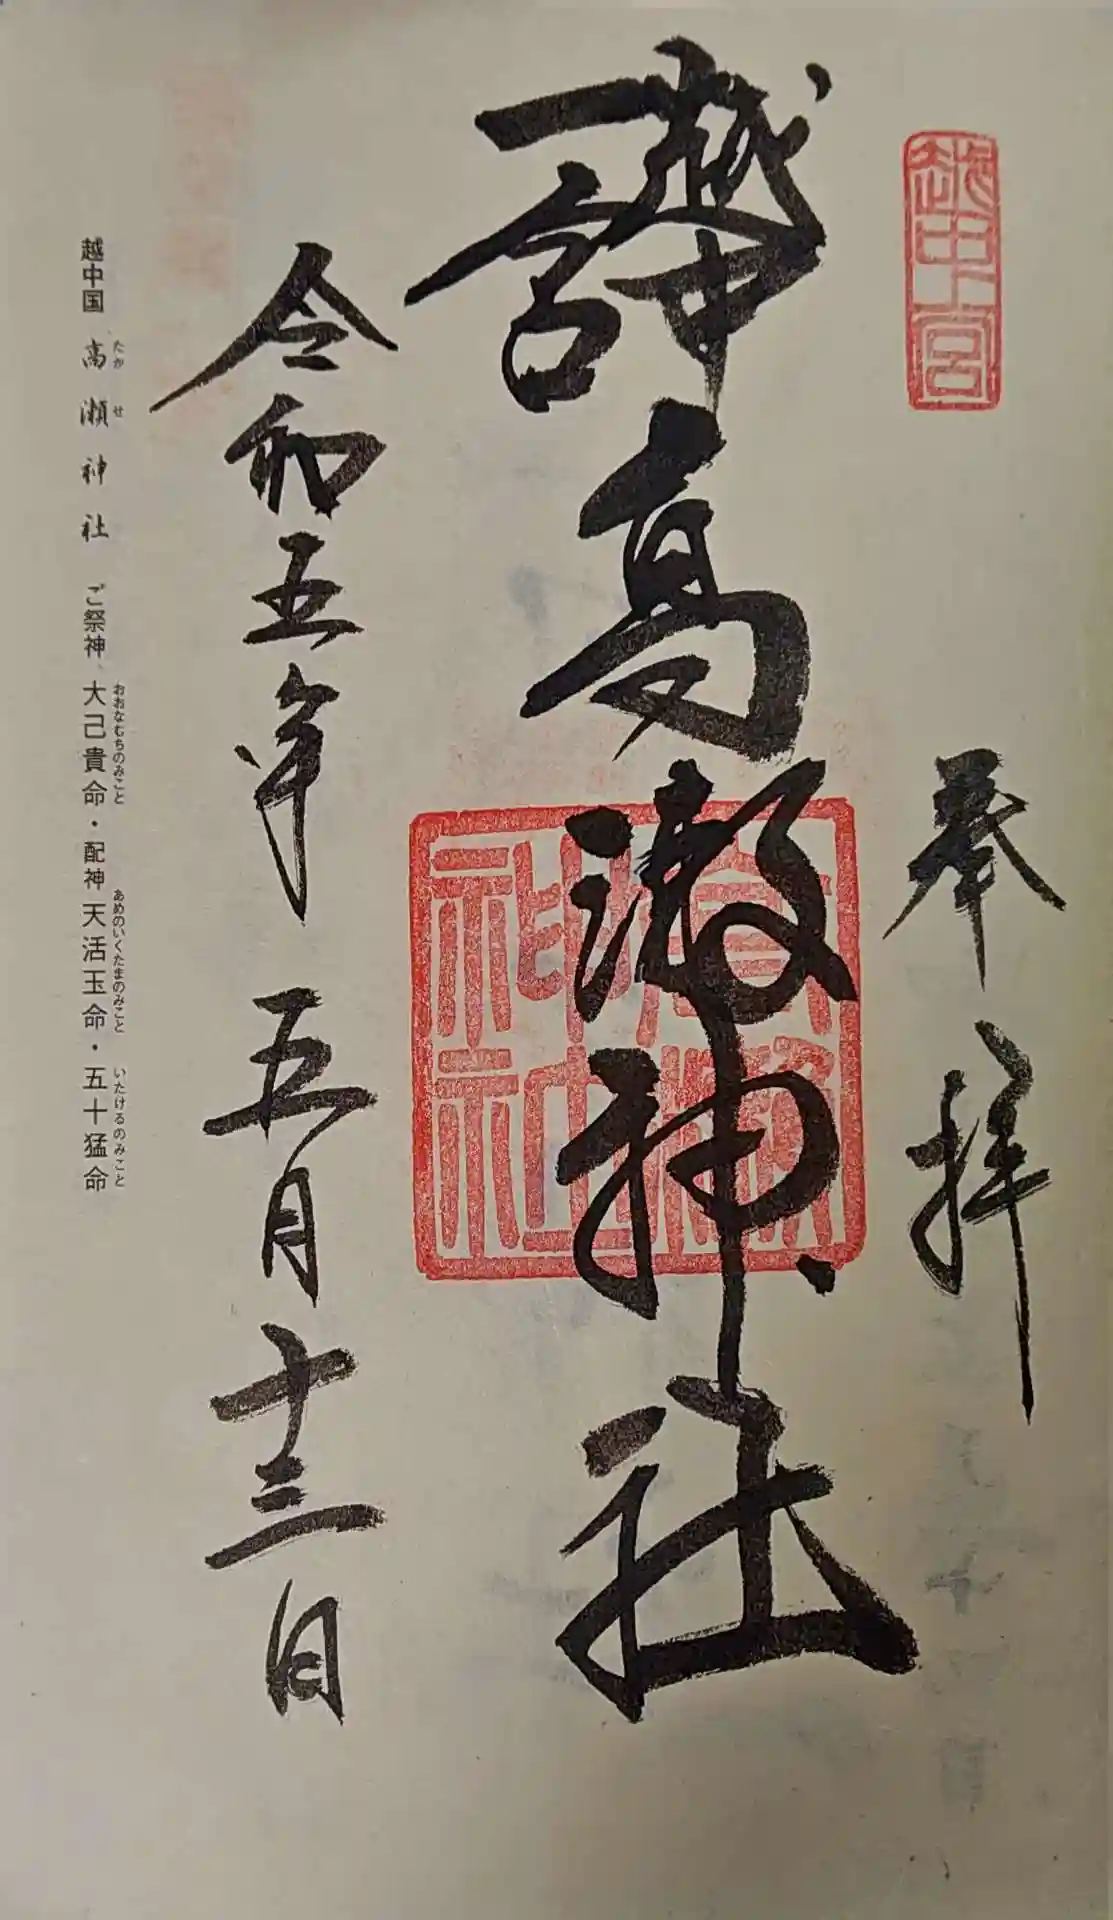 越中一宮
奉拝
越中
一宮
高瀬神社
高瀬神社
令和五年五月十三日
越中国 高瀬神社 ご祭神、大己貴命・配神 天活玉命・五十猛命
たか せ おおなむちのみこと あめのいくたまのみこと いたけるのみこと